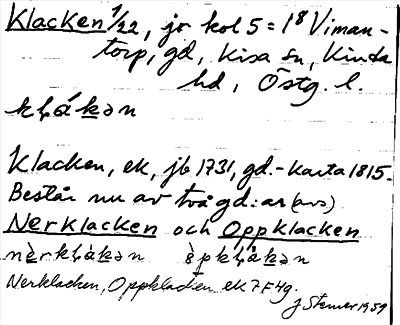 Klacken 1/22, jr kol 5 = 1⁸ Viman-
torp, gd, Kisa sn, Kinda
hd, Östg. l.
kḷákən
Klacken, ek, jb 1731, gd.-karta 1815.
Består nu av två gd:ar (avs)
Nerklacken och Oppklacken
nèrkḷàkən òpkḷàkən
Nerklacken, Oppklacken ek 7F4g.
J Stenner 1959